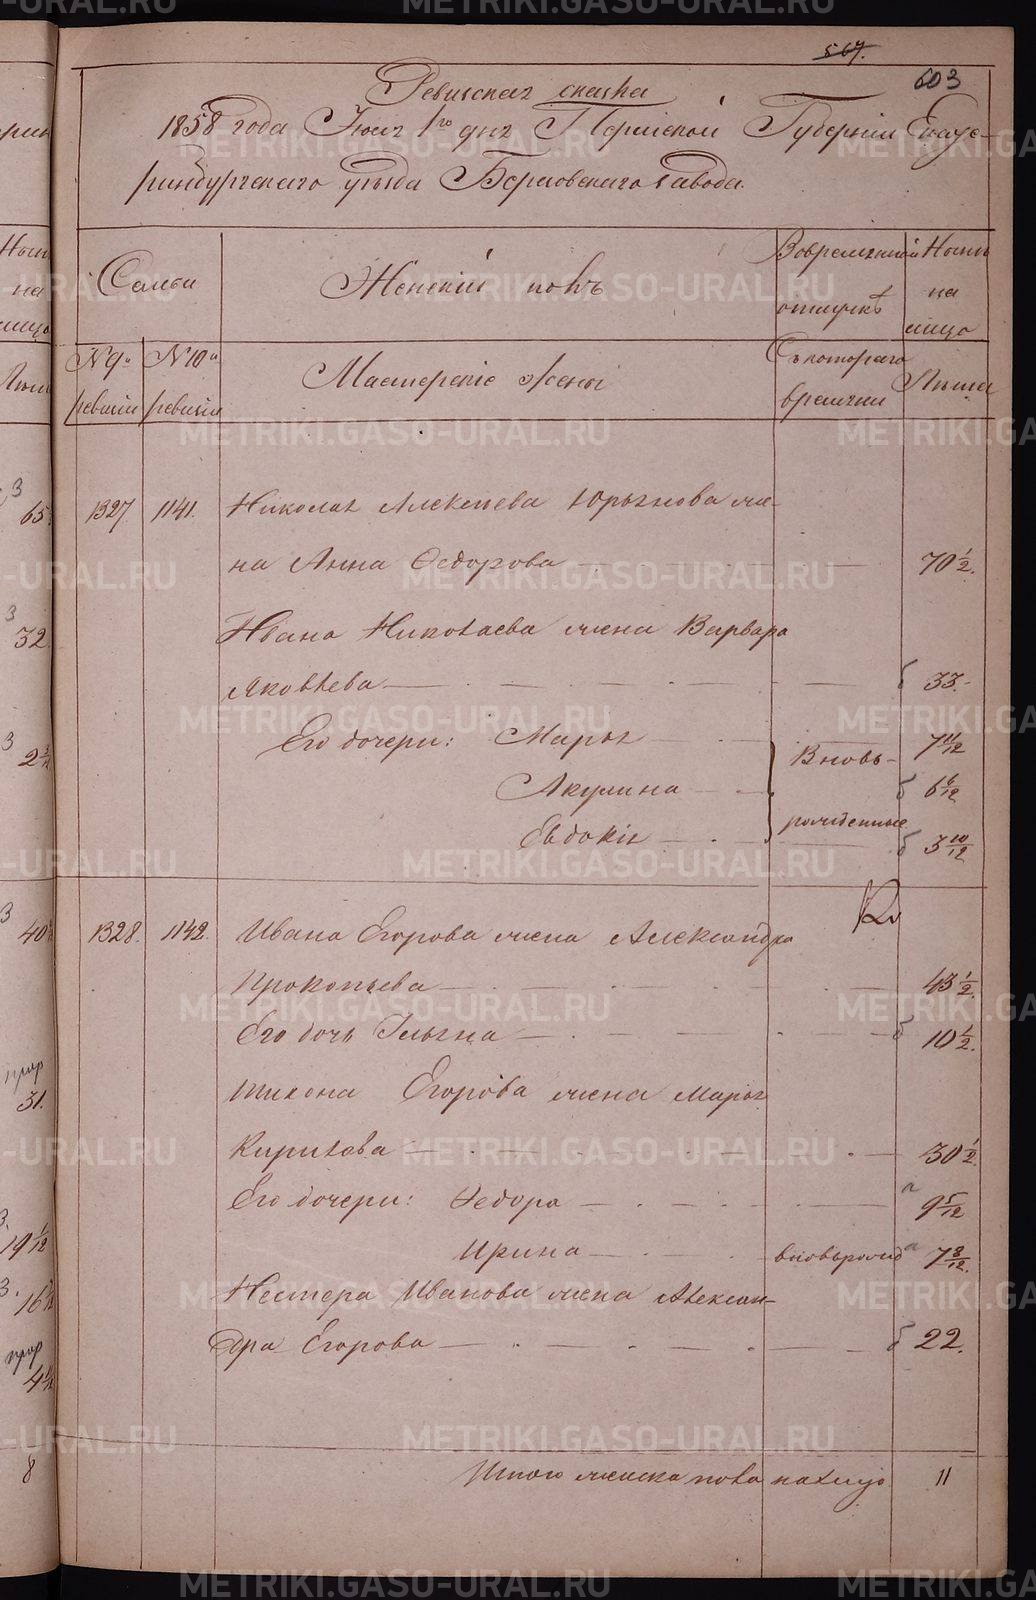 567.
603
Ревизская сказка
1858 года Июня 1го дня Пермской Губернии Екате-
ринбургского уезда Березовского завода.
Семьи
Женский полъ
Во временной отлучкѣ
Ныне на лицо
№ 9й ревизіи
№ 10й ревизіи
Мастерскіе жены
Съ котораго времени
Лѣта
1327. 1141. Николая Алексеева Юрьянова же-
на Анна Федорова 70 1/2.
Ивана Николаева жена Варвара
Яковлева б 33.
Его дочери: Марья 7 11/12
Акулина Вновь- б 6 6/12
Евдокія рожденные б 3 10/12
1328. 1142. Ивана Егорова жена Александра
Прокопьева 43 1/2.
Его дочь Ульяна б 10 1/2.
Тихона Егорова жена Марья
Кирилова 30 1/2
Его дочери: Федора 9 5/12
Ирина вновьрожд 7 3/12.
Нестера Иванова жена Алексан-
дра Егорова б 22.
Итого женска пола на лицо 11
METRIKI.GASO-URAL.RU